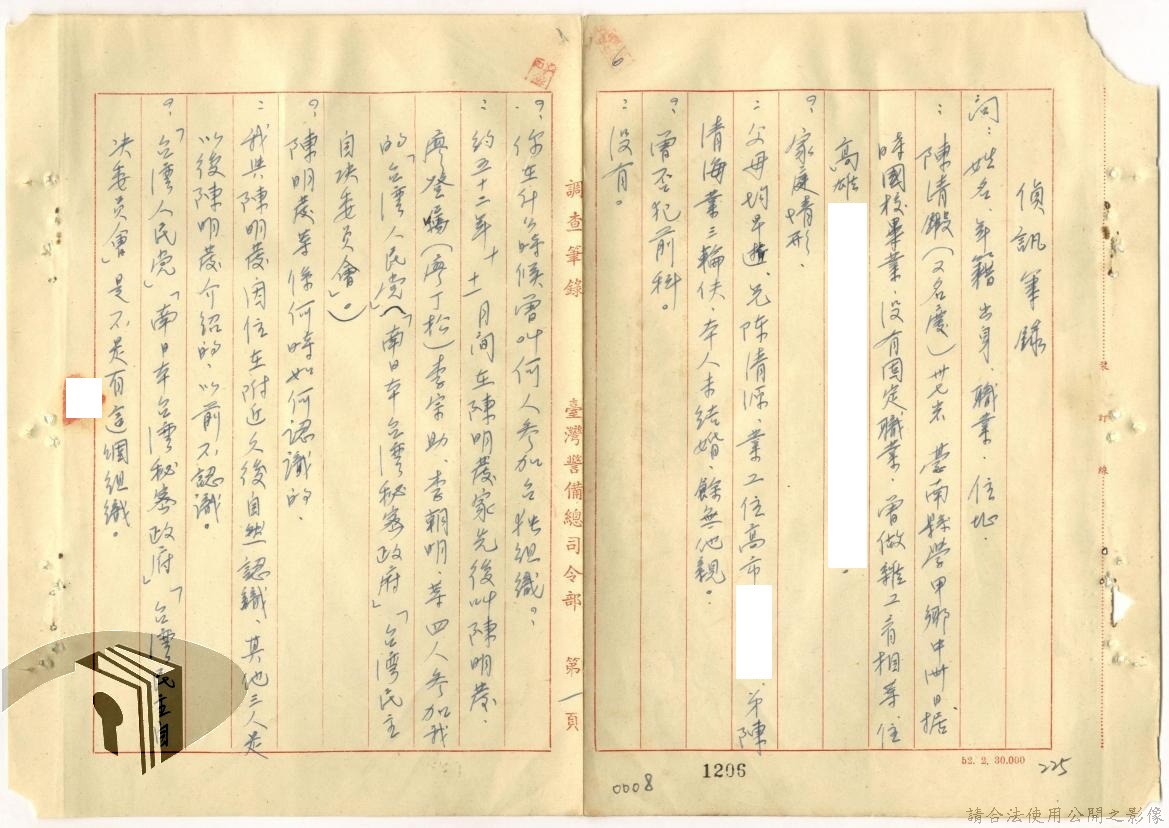 偵訊筆錄
問：姓名、年籍、出身、職業、住址。
：陳清鍛（又名慶）卅七岁、臺南縣學甲鄉中洲、日据
時國校畢業、没有固定職業、曾做雜工、看相等、住
高雄
？家庭情形、
：父母均早逝、兄陈清源、業工住高市　、弟陳
清海業三輪伕、本人未结婚、餘無他親。
？曾否犯前科。
：没有。
？你在什么時候曾叫何人参加台独組織？
：約五十二年十、十一月間在陳明發家先後叫陳明發、
廖登（廖丁松）李宗助、李朝明、等四人参加我
的「台湾人民党」（「南日本台湾秘密政府」「台湾民主
自决委員會」。）
？陳明發等係何時如何認識的、
：我與陳明發因住在附近久後自然認識、其他三人是
以後陳明發介绍的、以前不認識。
？「台湾人民党」「南日本台湾秘密政府」「台湾民主自
决委員會」是不是有這個組織。
調查筆錄
臺灣警備總司令部
第一頁
裝訂線
52. 2. 30.000
225
1206
0008
6
請合法使用公開之影像